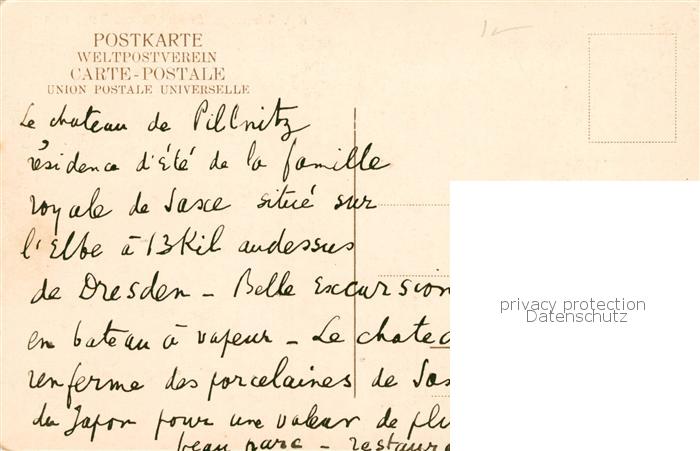 POSTKARTE
WELTPOSTVEREIN
CARTE-POSTALE
UNION POSTALE UNIVERSELLE
Le chateau de Pillnitz
résidence d'été de la famille
royale de Saxe situé sur
l'Elbe à 13 Kil audessus
de Dresden – Belle Excursion
en bateau à vapeur – Le chatea
renferme des porcelaines de Sax
du Japon pour une valeur de plu
beau parc – restaura
privacy protection
Datenschutz